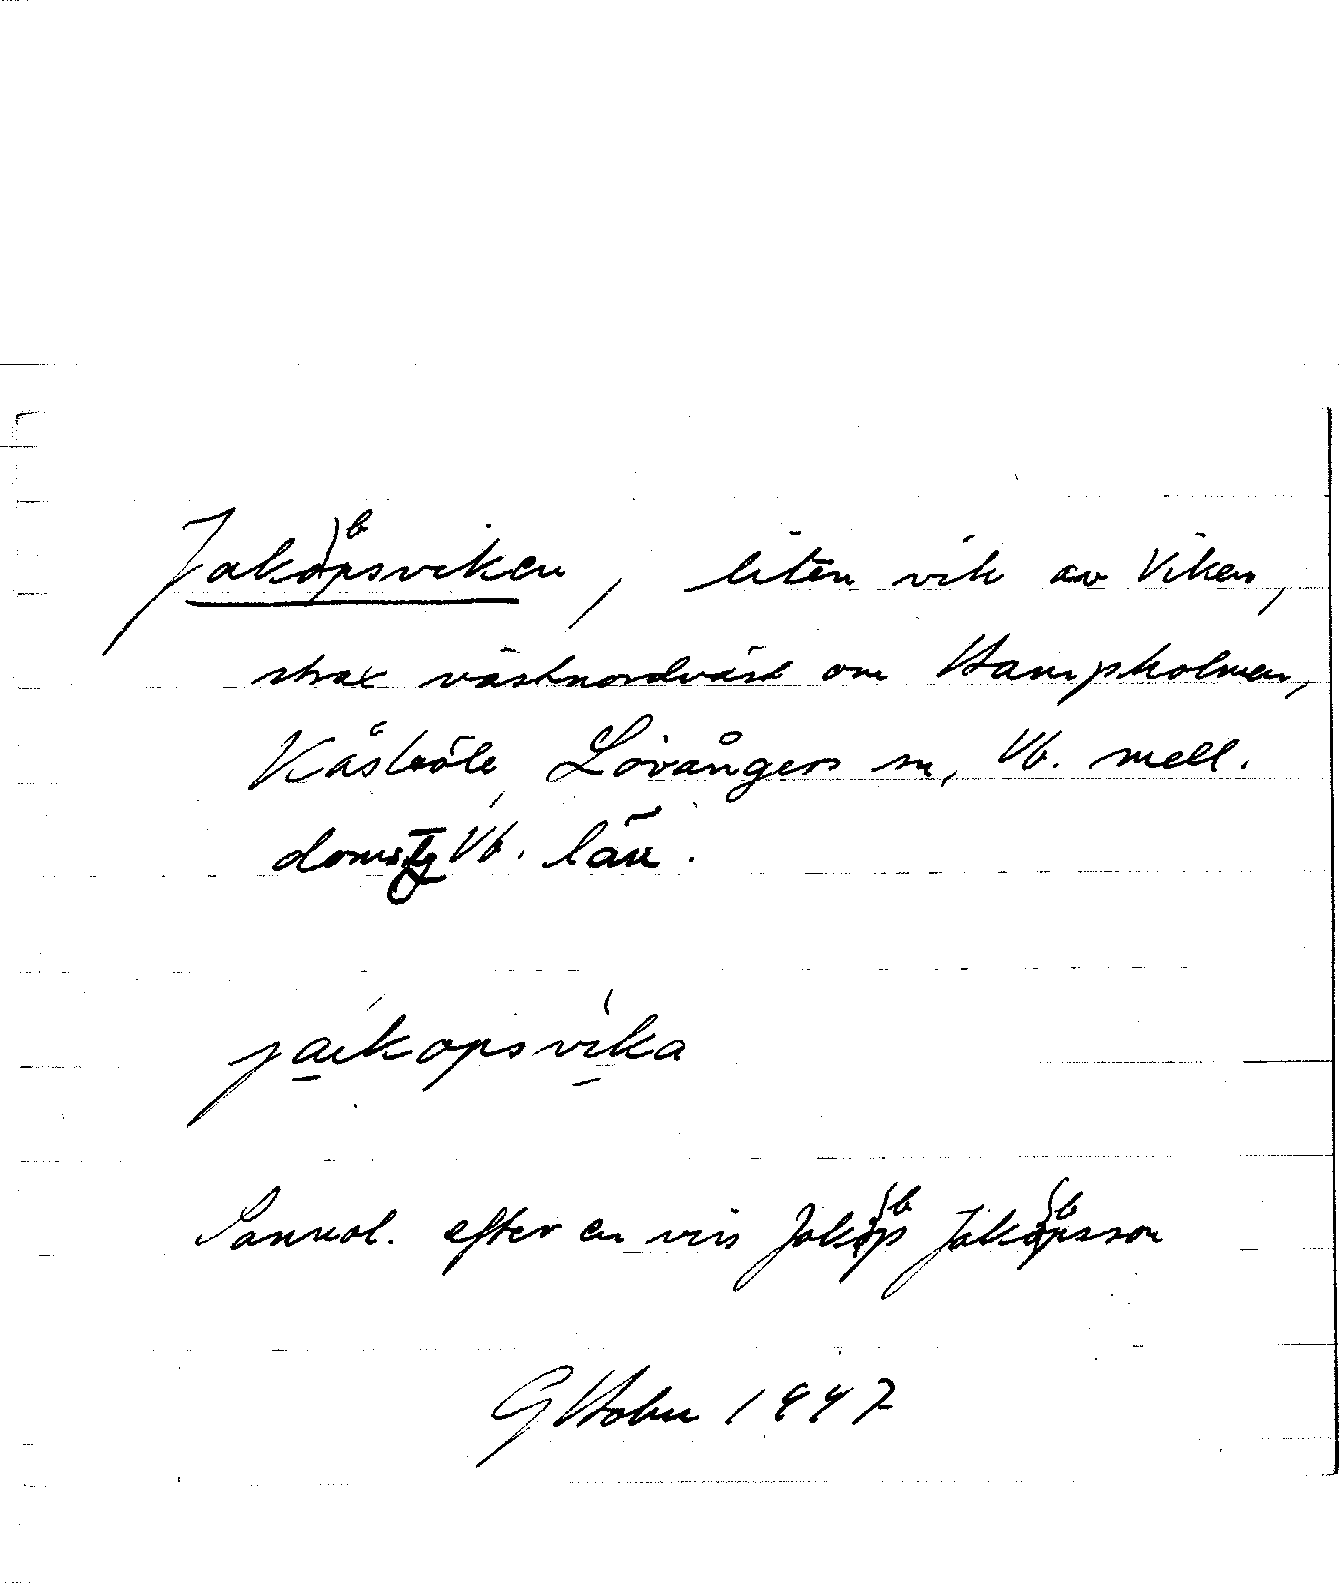 Jakobsviken, liten vik av Viken,
strax västnordväst om Hampholmen,
Kåsböle, Lövångers sn, Vb. mell.
doms tg Vb. län.
jaikopsvika
Sannol. efter en viss Jakob Jakobsson
G Holm 1947